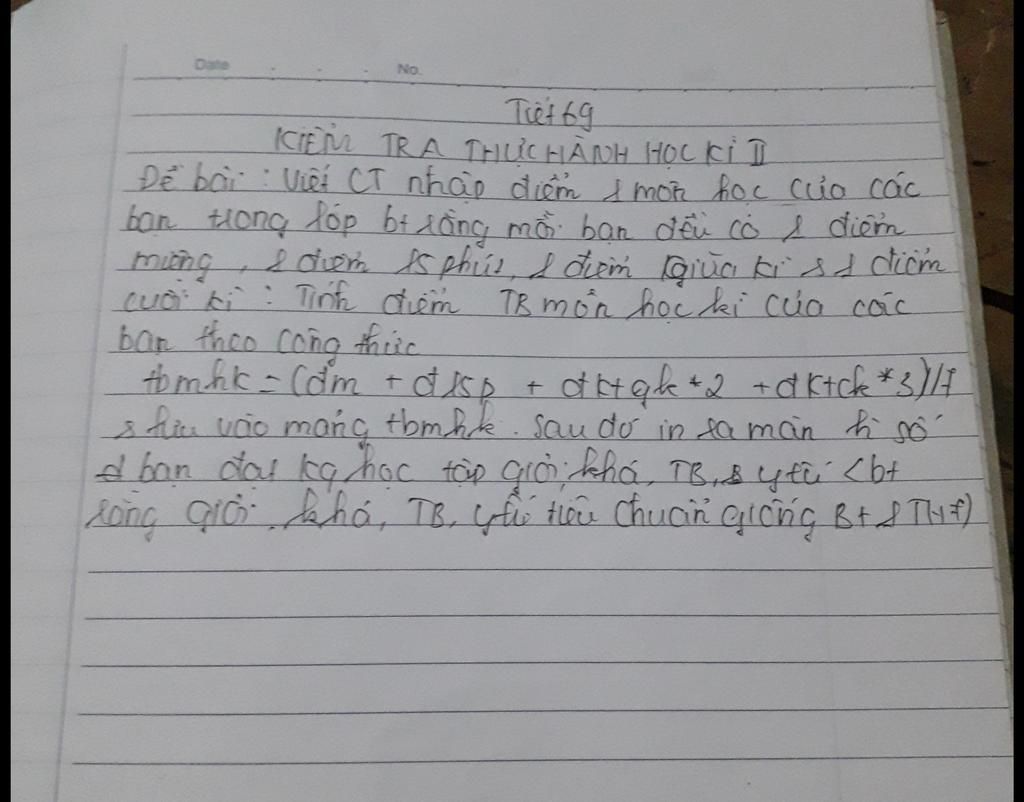 Date . . . No.
Tiết 69
KIỂM TRA THỰC HÀNH HỌC KÌ II
Đề bài : Viết CT nhập điểm 1 môn học của các
bạn trong lớp bt rằng mỗi bạn đều có 1 điểm
miệng, 1 điểm 15 phút, 1 điểm giữa kì & 1 điểm
cuối kì : Tính điểm TB môn học kì của các
bạn theo công thức
tbmhk = (đm + đ15p + đktgk *2 + đktck *3)/7
& lưu vào mảng tbmhk. Sau đó in ra màn h số
bạn đạt kq học tập giỏi, khá, TB, & yếu <bt
rằng giỏi, khá, TB, yếu tiêu chuẩn giống Bt 1 TH7)